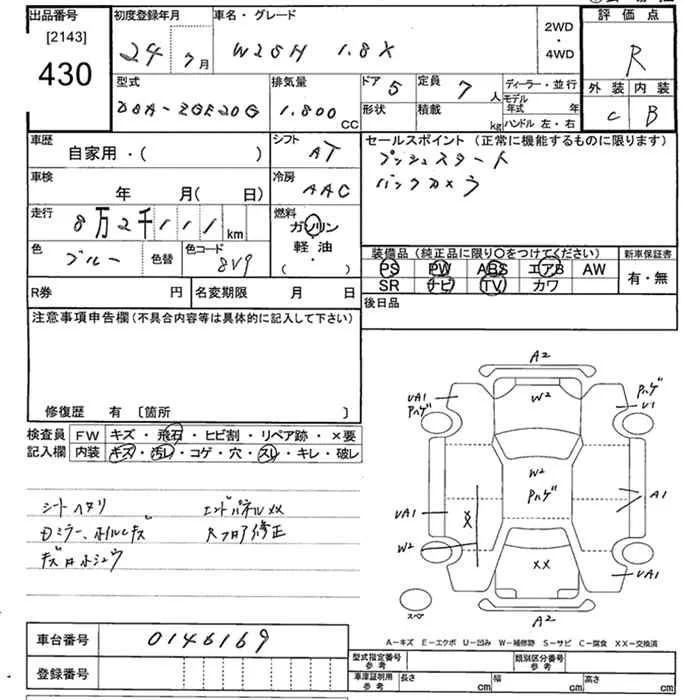 出品番号 初度登録年月 車名・グレード 2WD ・ 4WD 評価点
[2143]
430 24年 7月 WISH 1.8X R
型式 排気量 ドア 5 定員 7人 ディーラー・並行 外装 内装
DBA-ZGE20G 1.800cc 形状 積載 kg モデル年式 年 C B
ハンドル 左・右
車歴 シフト セールスポイント(正常に機能するものに限ります)
自家用・( ) AT プッシュスタート
車検 年 月(日) 冷房 AAC バックカメラ
走行 8万2千111km 燃料 ガソリン・軽油・( )
色 ブルー 色替 色コード 8V9
装備品(純正品に限り〇をつけてください) 新車保証書
PS PW ABS エアB AW 有・無
SR ナビ TV カワ
R券 円 名変期限 月 日 後日品
注意事項申告欄(不具合内容等は具体的に記入して下さい)
修復歴 有 [箇所 ]
検査員記入欄 FW キズ・飛石・ヒビ割・リペア跡・×要
内装 キズ・汚レ・コゲ・穴・スレ・キレ・破レ
シートヘタリ エンドパネルXX
Dミラー、ホイルキズ Rフロア修正
キズ有ホシュウ
A2
UA1 Pハゲ W2 Pハゲ U1
W2 Pハゲ
UA1 XX A1
W2 XX UA1
スペア A2
A-キズ E-エクボ U-凹み W-補修跡 S-サビ C-腐食 XX-交換済
車台番号 0146169
登録番号
型式指定番号 参考 類別区分番号 参考
車庫証明用 参考 長さ cm 幅 cm 高さ cm